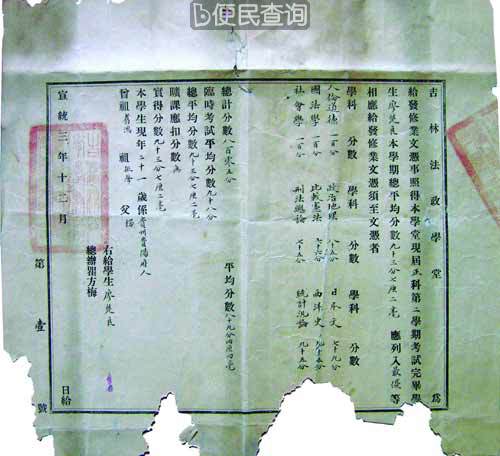 便民查询
吉林法政學堂 為
給發修業文憑事照得本學堂現屆正科第二學期考試完畢學
生廖楚良本學期總平均分數九十三分七厘二毫應列入最優等
相應給發修業文憑須至文憑者
學科 分數 學科 分數 學科 分數
人倫道德 一百分 政治地理 八十五分 日本文 七十九分
國法學 一百分 比較憲法 七十六分 西洋史 九十五分
社會學 一百分 刑法總論 七十五分 統計汎論 九十五分
總計分數八百零五分 平均分數八十九分四厘四毫
臨時考試平均分數九十八分
總平均分數九十三分七厘二毫
曠課應扣分數無
實得分數九十三分七厘二毫
本學生現年二十一歲係貴州貴陽府人
曾祖 祖 父
右給學生廖楚良
總辦瞿方梅
宣統三年十二月 日給
第壹號